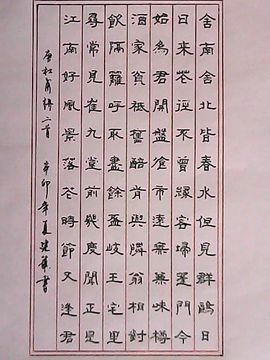 舍南舍北皆春水但見群鷗日
日來花徑不曾緣客掃蓬門今
始為君開盤飧市遠無兼味樽
酒家貧祗舊醅肯與隣翁相對
飲隔籬呼取盡餘盃岐王宅里
尋常見崔九堂前幾度聞正是
江南好風景落花時節又逢君
唐杜甫詩二首 辛卯年夏 書